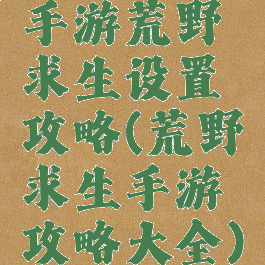 手游荒野
求生设置
攻略(荒野
求生手游
攻略大全)